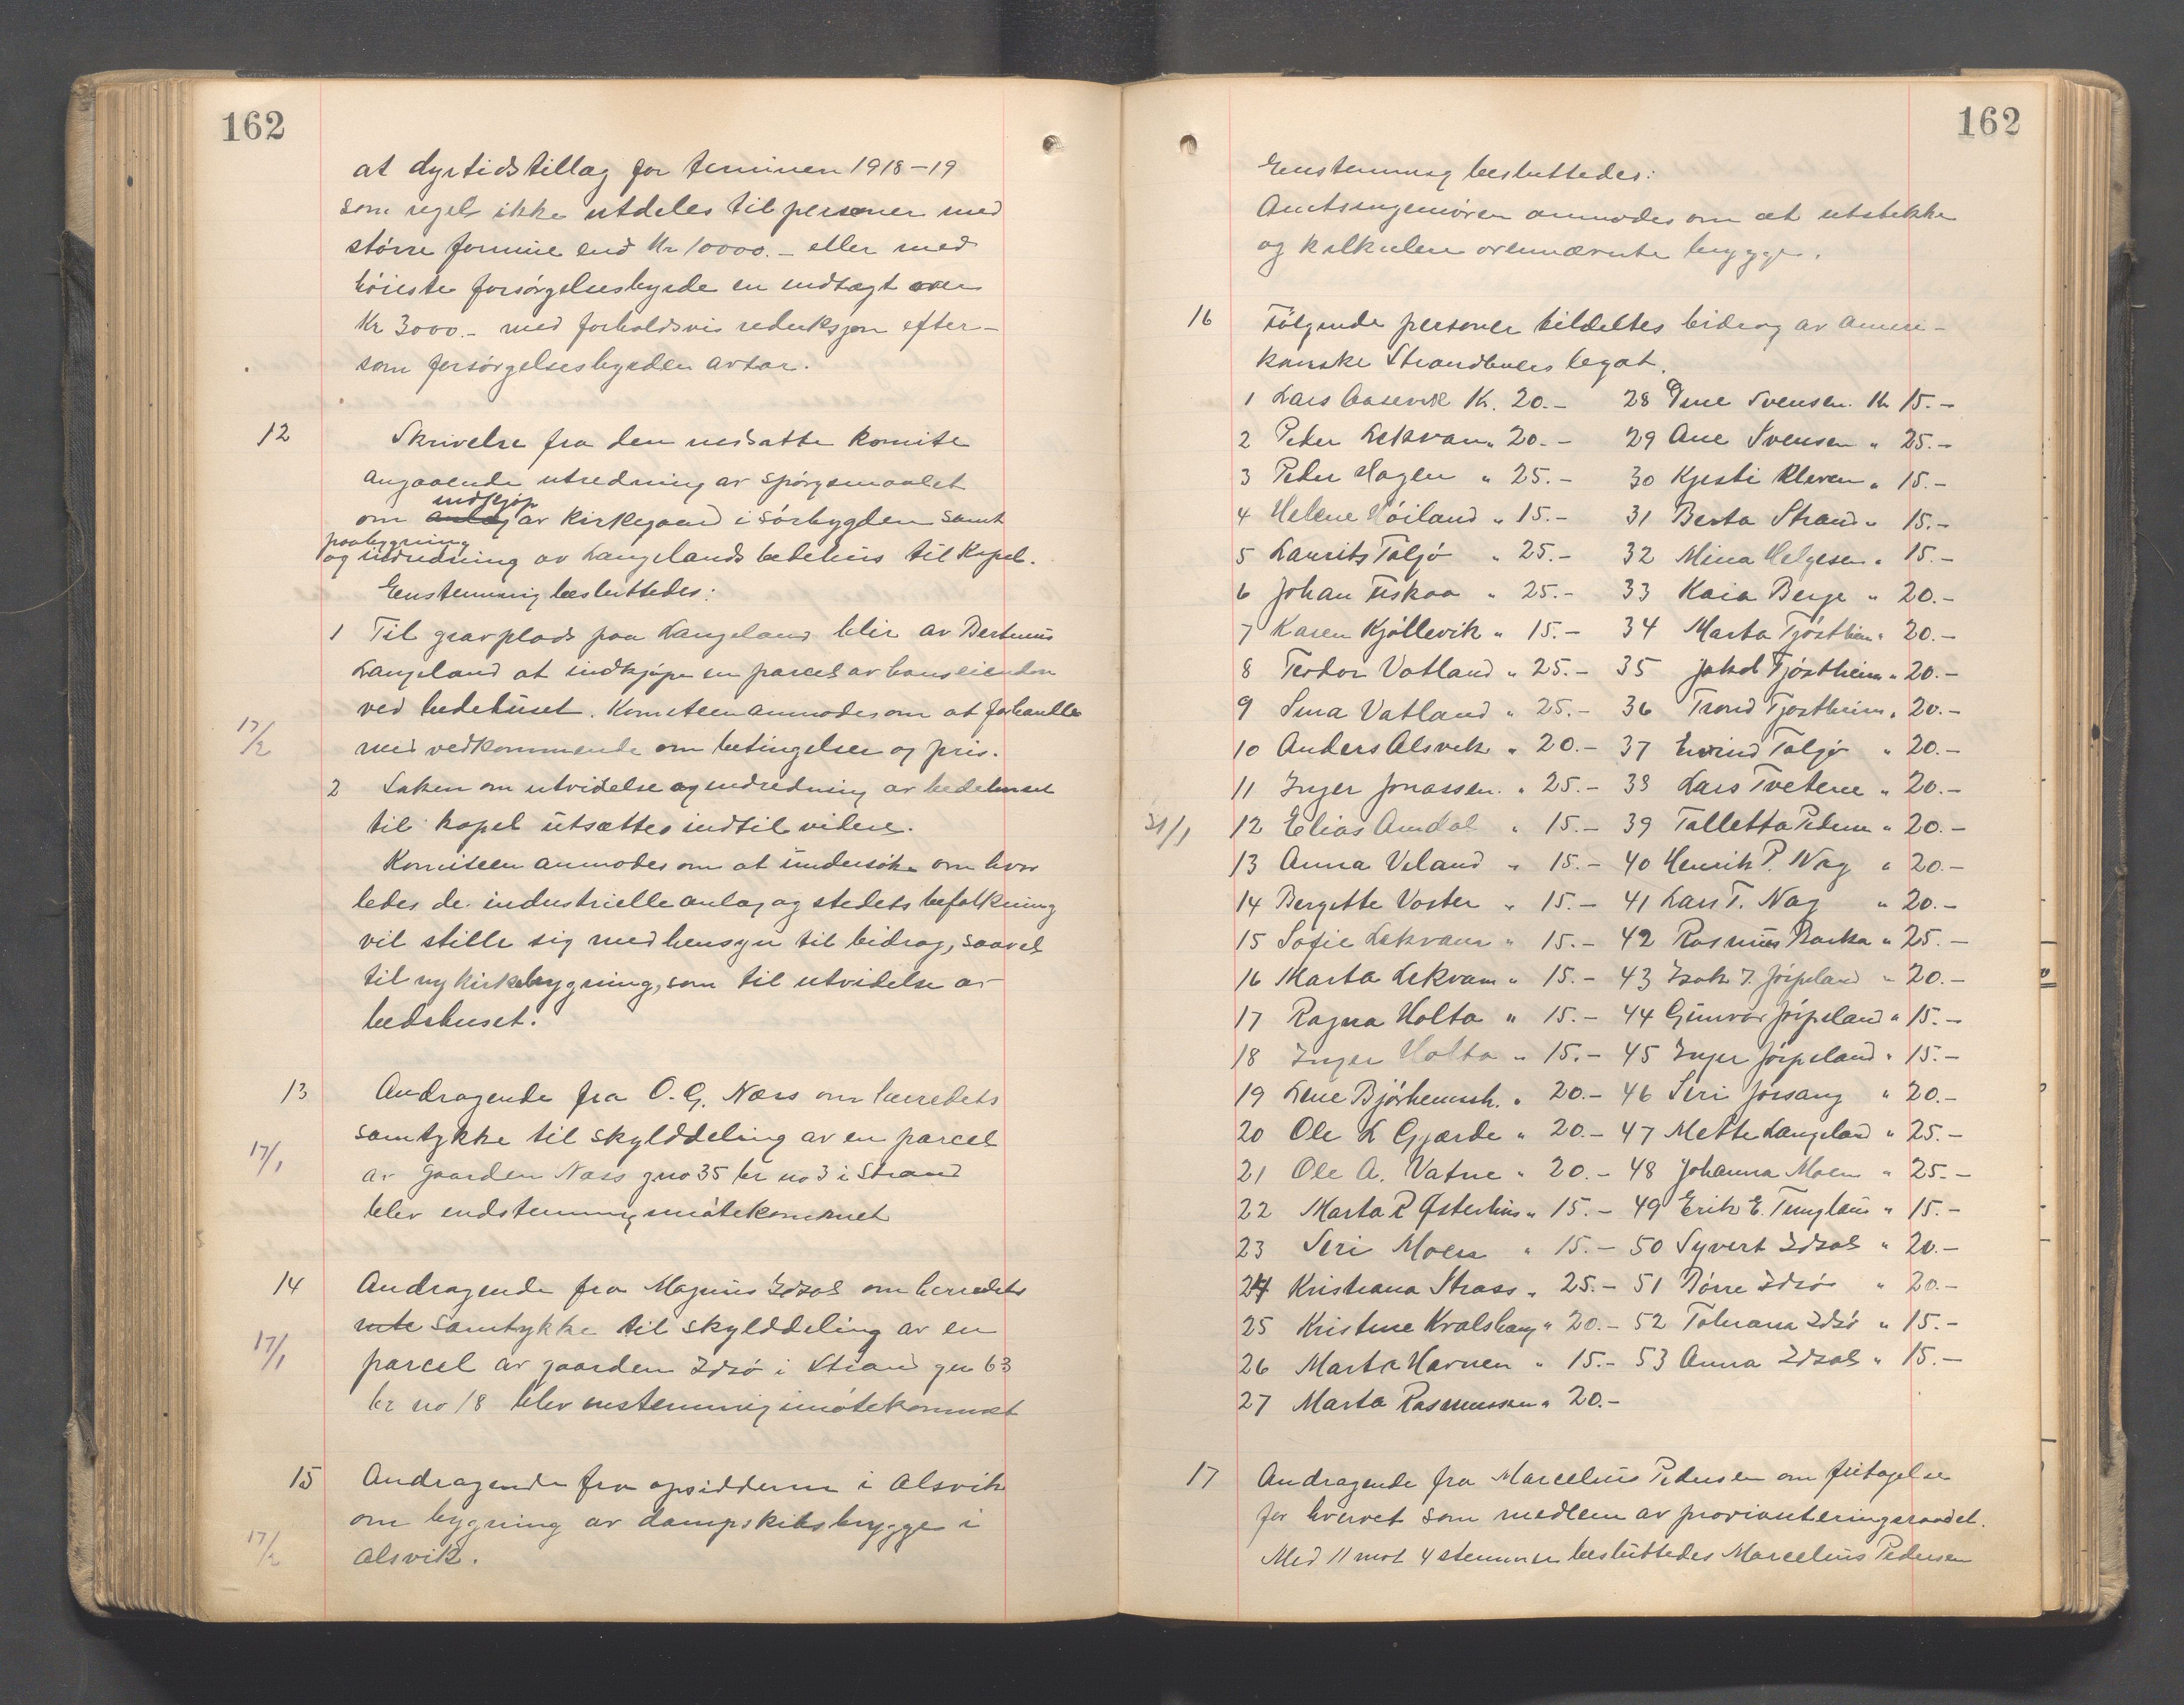 162
at dyrtidstillæg for terminen 1918-19
som regel ikke utdeles til personer med
större formue end Kr 10000.- eller med
höieste forsörgelsesbyrde en indtægt over
Kr 3000.- med forholdsvis reduksjon efter-
som forsörgelsesbyrden avtar.
12 Skrivelse fra den nedsatte komite
angaaende utredning av spörgsmaalet
indkjöp
om anlæg av kirkegaard i sörbygden samt
paabygning
og indredning av Langelands bedehus til Kapel.
Enstemmig besluttedes:
1 Til gravplads paa Langeland blir av Bertinius
Langeland at indkjøpe en parcel av hans eiendom
ved bedehuset. Komiteen anmodes om at forhandle
17/2
med vedkommende om betingelser og pris.
2 Saken om utvidelse og indredning av bedehuset
til kapel utsættes indtil videre.
Komiteen anmodes om at undersöke om hvor
ledes de industrielle anlæg og stedets befolkning
vil stille sig med hensyn til bidrag, saavel
til ny kirkebygning, som til utvidelse av
bedehuset.
13 Andragende fra O. G. Næss om herredets
samtykke til skylddeling av en parcel
17/1
av gaarden Næss gno 35 br no 3 i Strand
blev endstemmig imötekommet
14 Andragende fra Magnus Idsal om herredets
samtykke til skylddeling av en
17/1
parcel av gaarden Idsö i Strand gn 63
br no 18 blev enstemmig imötekommet
15 Andragende fra opsidderne i Alsvik
om bygning av dampskibsbrygge i
17/2
Alsvik.
162
Enstemmig besluttedes:
Amtsingeniören anmodes om at utstikke
og kalkulere ovennævnte brygge.
16 Fölgende personer tildeltes bidrag av Ameri-
kanske Strandbues legat.
1 Lars Aasevik Kr. 20.- 28 Svensen Kr 15.-
2 Peder Lekvam " 20.- 29 Ane Svensen " 25.-
3 Peder Hagen " 25.- 30 Kjesti Kleven " 15.-
4 Helene Höiland " 15.- 31 Berta Strand " 15.-
5 Laurits Taljö " 25.- 32 Mina Helgesen " 15.-
6 Johan Fiskaa " 25.- 33 Kaia Berge " 20.-
7 Karen Kjöllevik " 15.- 34 Marta Tjöstheim " 20.-
8 Teodor Vatland " 25.- 35 Jakob Tjöstheim " 20.-
9 Sina Vatland " 25.- 36 Trond Tjöstheim " 20.-
10 Anders Alsvik " 20.- 37 Eivind Taljö " 20.-
11 Inger Jonassen " 25.- 38 Lars Tvetene " 20.-
31/1
12 Elias Amdal " 15.- 39 Talletta Pedersen " 20.-
13 Anna Veland " 15.- 40 Henrik P. Nag " 20.-
14 Bergitte Voster " 15.- 41 Lars T. Nag " 20.-
15 Sofie Lekvam " 15.- 42 Rasmus Barka " 25.-
16 Marta Lekvam " 15.- 43 Isak T. Jörpeland " 20.-
17 Ragna Holta " 15.- 44 Gunvor Jörpeland " 15.-
18 Inger Holta " 15.- 45 Inger Jörpeland " 15.-
19 Lene Björheimsb. " 20.- 46 Siri Jössang " 20.-
20 Ole L Gjærde " 20.- 47 Mette Langeland " 25.-
21 Ole A. Vatne " 20.- 48 Johanna Moen " 25.-
22 Marta R Østerhus " 15.- 49 Erik E. Tungland " 15.-
23 Siri Moen " 15.- 50 Syvert Idsal " 20.-
24 Kristiana Strass. " 25.- 51 Börre Idsö " 20.-
25 Kristine Kvalshaug " 20.- 52 Idsö " 15.-
26 Marta Havnen " 15.- 53 Anna Idsal " 15.-
27 Marta Rasmussen " 20.-
17 Andragende fra Marcelius Pedersen om fritagelse
for hvervet som medlem av provianteringsraadet.
Med 11 mot 4 stemmer besluttedes Marcelius Pedersen